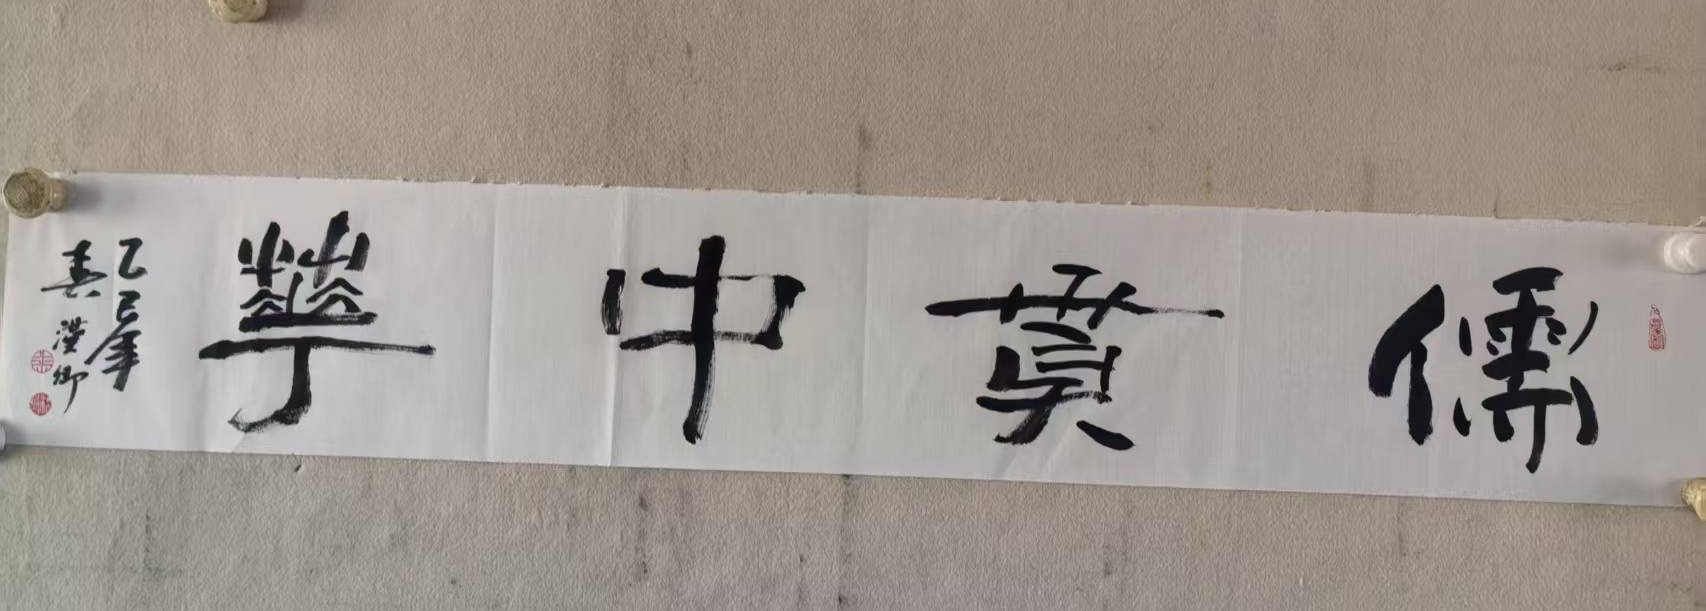 儒貫中華
乙巳年
春漢卿